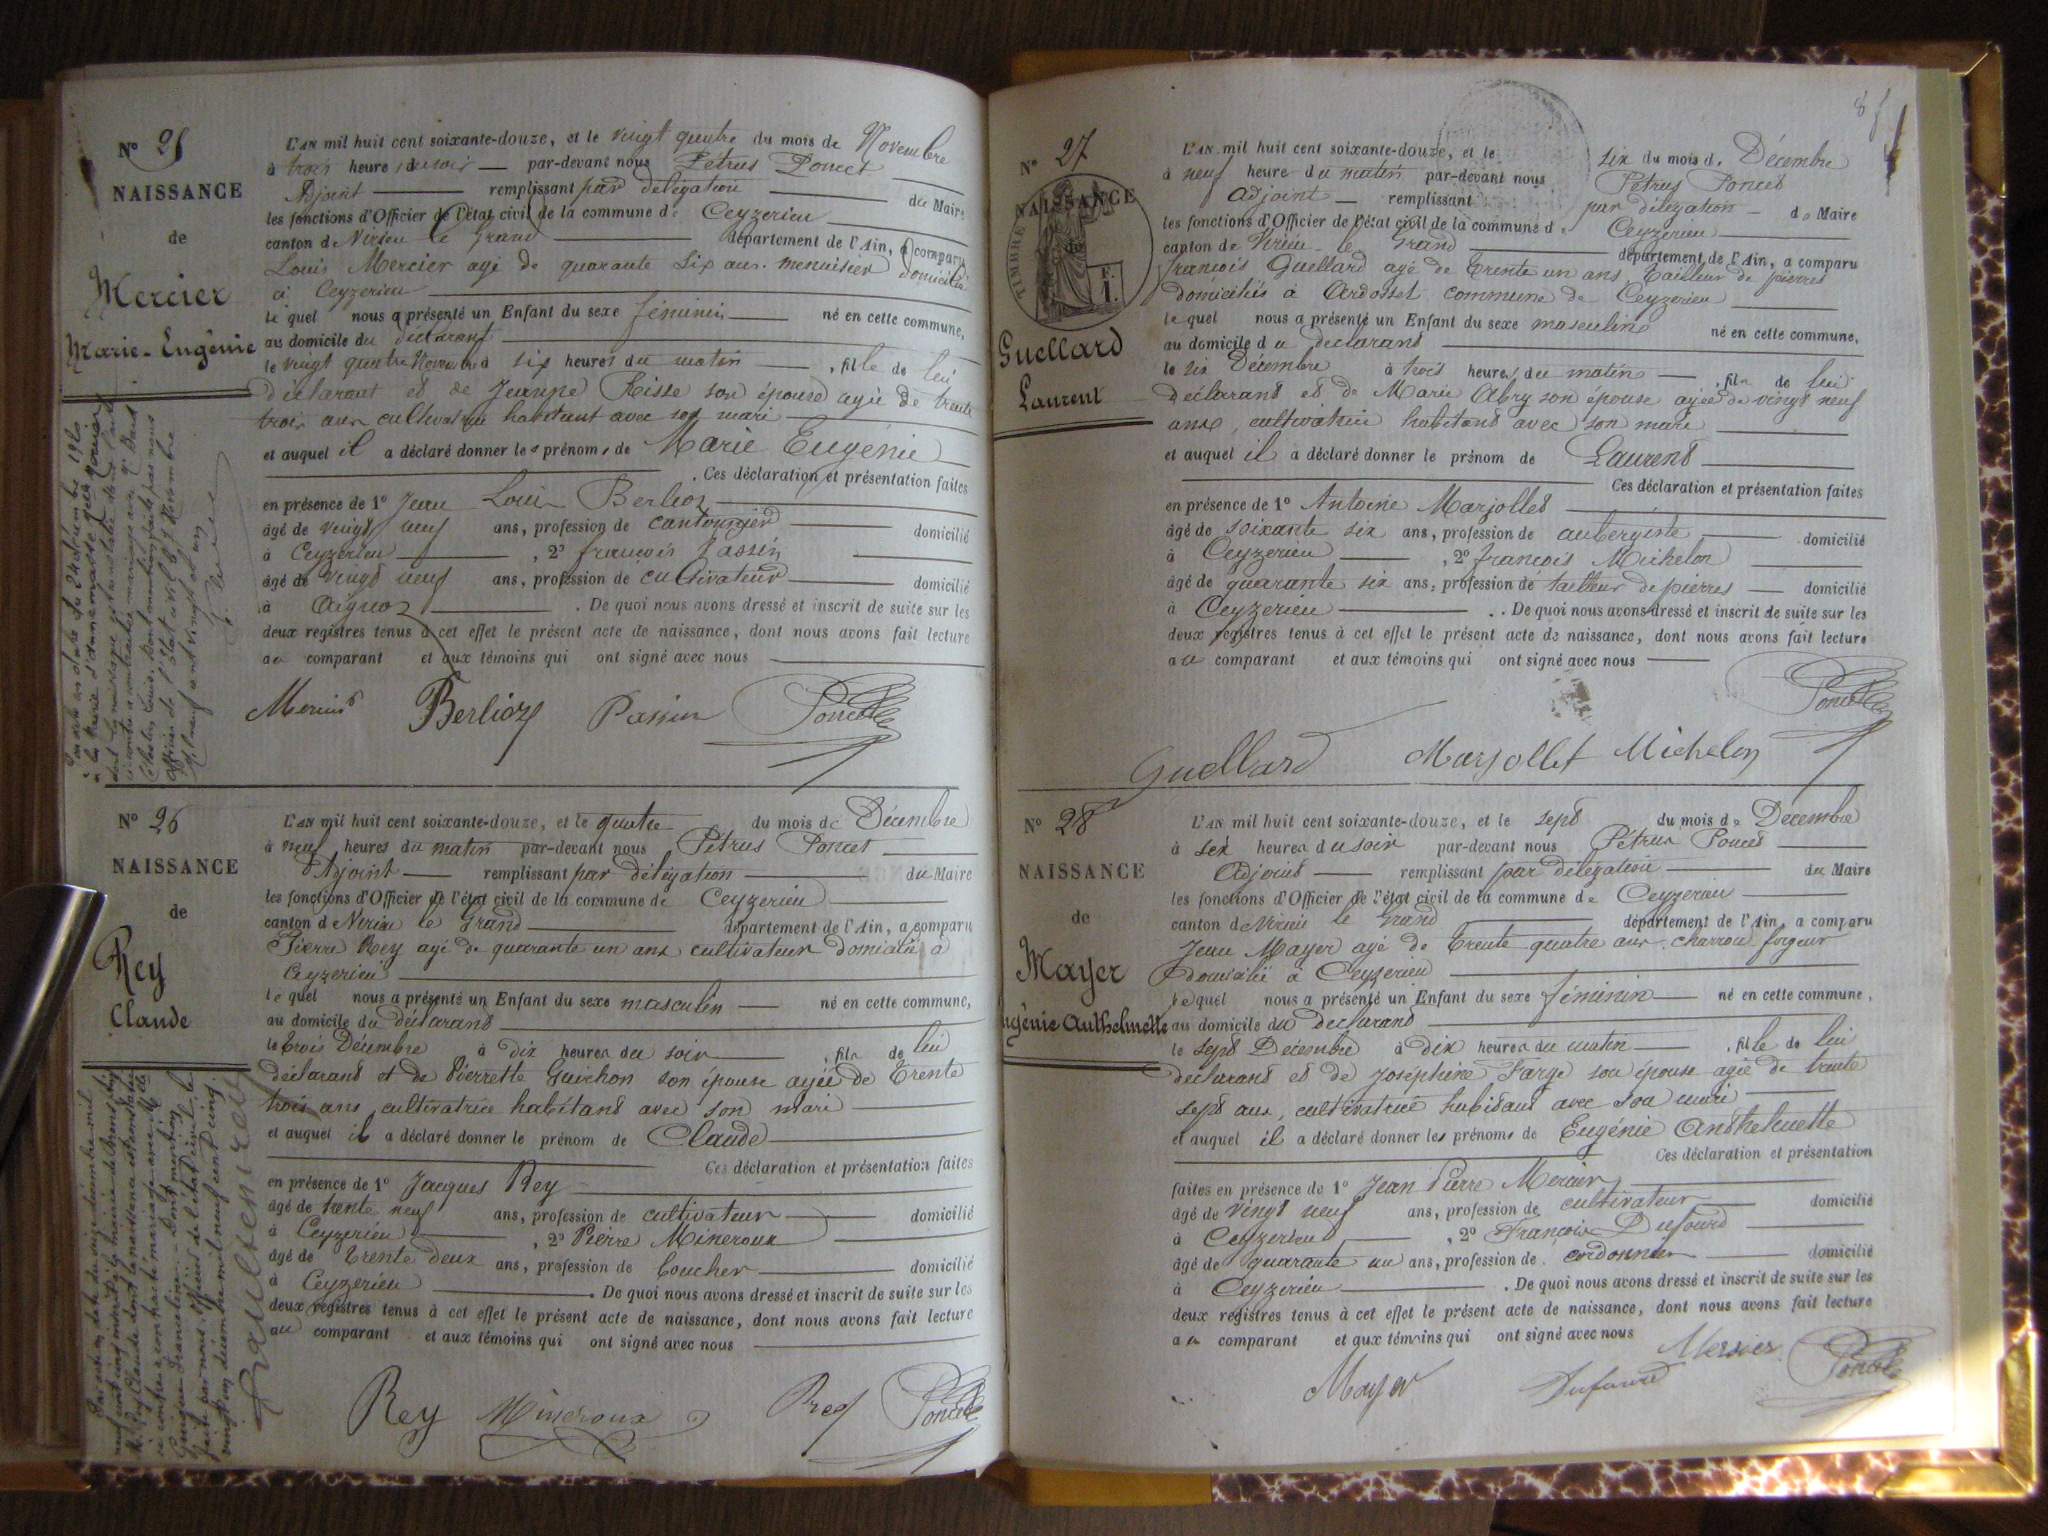 N° 25
NAISSANCE
de
Mercier
Marie-Eugénie
L'AN mil huit cent soixante-douze, et le vingt quatre du mois de Novembre
à trois heure du soir par-devant nous Pétrus Poncet
Adjoint remplissant par délégation du Maire
les fonctions d'Officier de l'état civil de la commune de Ceyzerieu
canton de Virieu le Grand département de l'Ain, a comparu
Louis Mercier agé de quarante six ans menuisier domicilié
à Ceyzerieu
lequel nous a présenté un Enfant du sexe féminin né en cette commune,
au domicile du déclarant
le vingt quatre Novembre à six heures du matin, fille de lui
déclarant et de Jeanne Risse son épouse agée de trente
trois ans cultivatrice habitant avec son mari
et auquel il a déclaré donner les prénoms de Marie Eugénie
. Ces déclaration et présentation faites
en présence de 1° Jean Louis Berlioz
âgé de vingt neuf ans, profession de cantonnier domicilié
à Ceyzerieu, 2° françois Passin
âgé de vingt neuf ans, profession de cultivateur domicilié
à Aignoz. De quoi nous avons dressé et inscrit de suite sur les
deux registres tenus à cet effet le présent acte de naissance, dont nous avons fait lecture
au comparant et aux témoins qui ont signé avec nous
Mercier Berlioz Passin Poncet
N° 26
NAISSANCE
de
Rey
Claude
L'AN mil huit cent soixante-douze, et le quatre du mois de Décembre
à neuf heures du matin par-devant nous Pétrus Poncet
Adjoint remplissant par délégation du Maire
les fonctions d'Officier de l'état civil de la commune de Ceyzerieu
canton de Virieu le Grand département de l'Ain, a comparu
Pierre Rey agé de quarante un ans cultivateur domicilié à
Ceyzerieu
lequel nous a présenté un Enfant du sexe masculin né en cette commune,
au domicile du déclarant
le trois Décembre à dix heures du soir, fils de lui
déclarant et de Pierrette Guichon son épouse agée de trente
trois ans, cultivatrice habitant avec son mari
et auquel il a déclaré donner le prénom de Claude
Ces déclaration et présentation faites
en présence de 1° Jacques Rey
âgé de trente neuf ans, profession de cultivateur domicilié
à Ceyzerieu, 2° Pierre Mineroux
âgé de trente deux ans, profession de boucher domicilié
à Ceyzerieu. De quoi nous avons dressé et inscrit de suite sur les
deux registres tenus à cet effet le présent acte de naissance, dont nous avons fait lecture
au comparant et aux témoins qui ont signé avec nous
Rey Mineroux Rey Poncet
N° 27
NAISSANCE
de
TIMBRE
Guellard
Laurent
L'AN mil huit cent soixante-douze, et le six du mois de Décembre
à neuf heure du matin par-devant nous Pétrus Poncet
adjoint remplissant par délégation du Maire
les fonctions d'Officier de l'état civil de la commune de Ceyzerieu
canton de Virieu le Grand département de l'Ain, a comparu
françois Guellard agé de trente un ans, tailleur de pierres
domicilié à Ardosset commune de Ceyzerieu
lequel nous a présenté un Enfant du sexe masculin né en cette commune,
au domicile du déclarant
le six Décembre à trois heures du matin, fils de lui
déclarant et de Marie Abry son épouse agée de vingt neuf
ans, cultivatrice habitant avec son mari
et auquel il a déclaré donner le prénom de Laurent
Ces déclaration et présentation faites
en présence de 1° Antoine Marjollet
âgé de soixante six ans, profession de aubergiste domicilié
à Ceyzerieu, 2° françois Michelon
âgé de quarante six ans, profession de tailleur de pierres domicilié
à Ceyzerieu. De quoi nous avons dressé et inscrit de suite sur les
deux registres tenus à cet effet le présent acte de naissance, dont nous avons fait lecture
au comparant et aux témoins qui ont signé avec nous
Poncet
Guellard Marjollet Michelon
N° 28
NAISSANCE
de
Mayer
Eugénie Anthelmette
L'AN mil huit cent soixante-douze, et le sept du mois de Décembre
à six heures du soir par-devant nous Pétrus Poncet
Adjoint remplissant par délégation du Maire
les fonctions d'Officier de l'état civil de la commune de Ceyzerieu
canton de Virieu le Grand département de l'Ain, a comparu
Jean Mayer agé de trente quatre ans charron forgeur
domicilié à Ceyzerieu
lequel nous a présenté un Enfant du sexe féminin né en cette commune,
au domicile du déclarant
le sept Décembre à dix heures du matin, fille de lui
déclarant et de Joséphine Farge son épouse agée de trente
sept ans, cultivatrice habitant avec son mari
et auquel il a déclaré donner les prénoms de Eugénie Anthelmette
Ces déclaration et présentation
faites en présence de 1° Jean Pierre Mercier
âgé de vingt neuf ans, profession de cultivateur domicilié
à Ceyzerieu, 2° François Dufourd
âgé de quarante un ans, profession de cordonnier domicilié
à Ceyzerieu. De quoi nous avons dressé et inscrit de suite sur les
deux registres tenus à cet effet le présent acte de naissance, dont nous avons fait lecture
au comparant et aux témoins qui ont signé avec nous Mercier
Mayer Dufourd Poncet